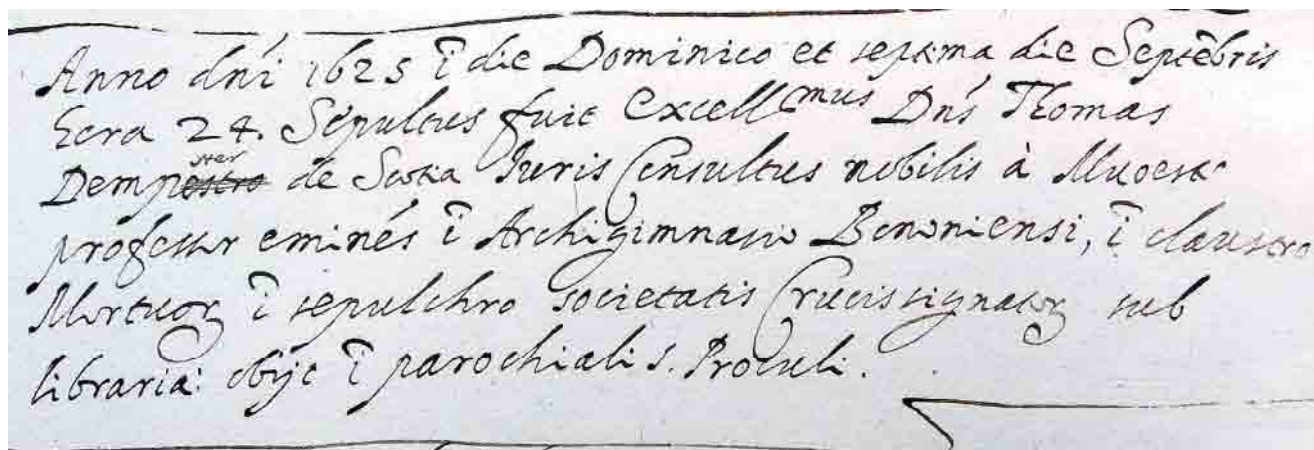 Anno dñi 1625 ĩ die Dominico et septima die Septẽbris
hora 24. Sepultus fuit Excell^mus Dñs Thomas
Dempster de Scotia Iuris Consultus nobilis à
professor eminẽs ĩ Archigimnasio Bononiensi, ĩ claustro
Mortuoꝝ ĩ sepulchro societatis Crucissignatoꝝ sub
libraria: obijt ĩ parochiali s. Proculi.